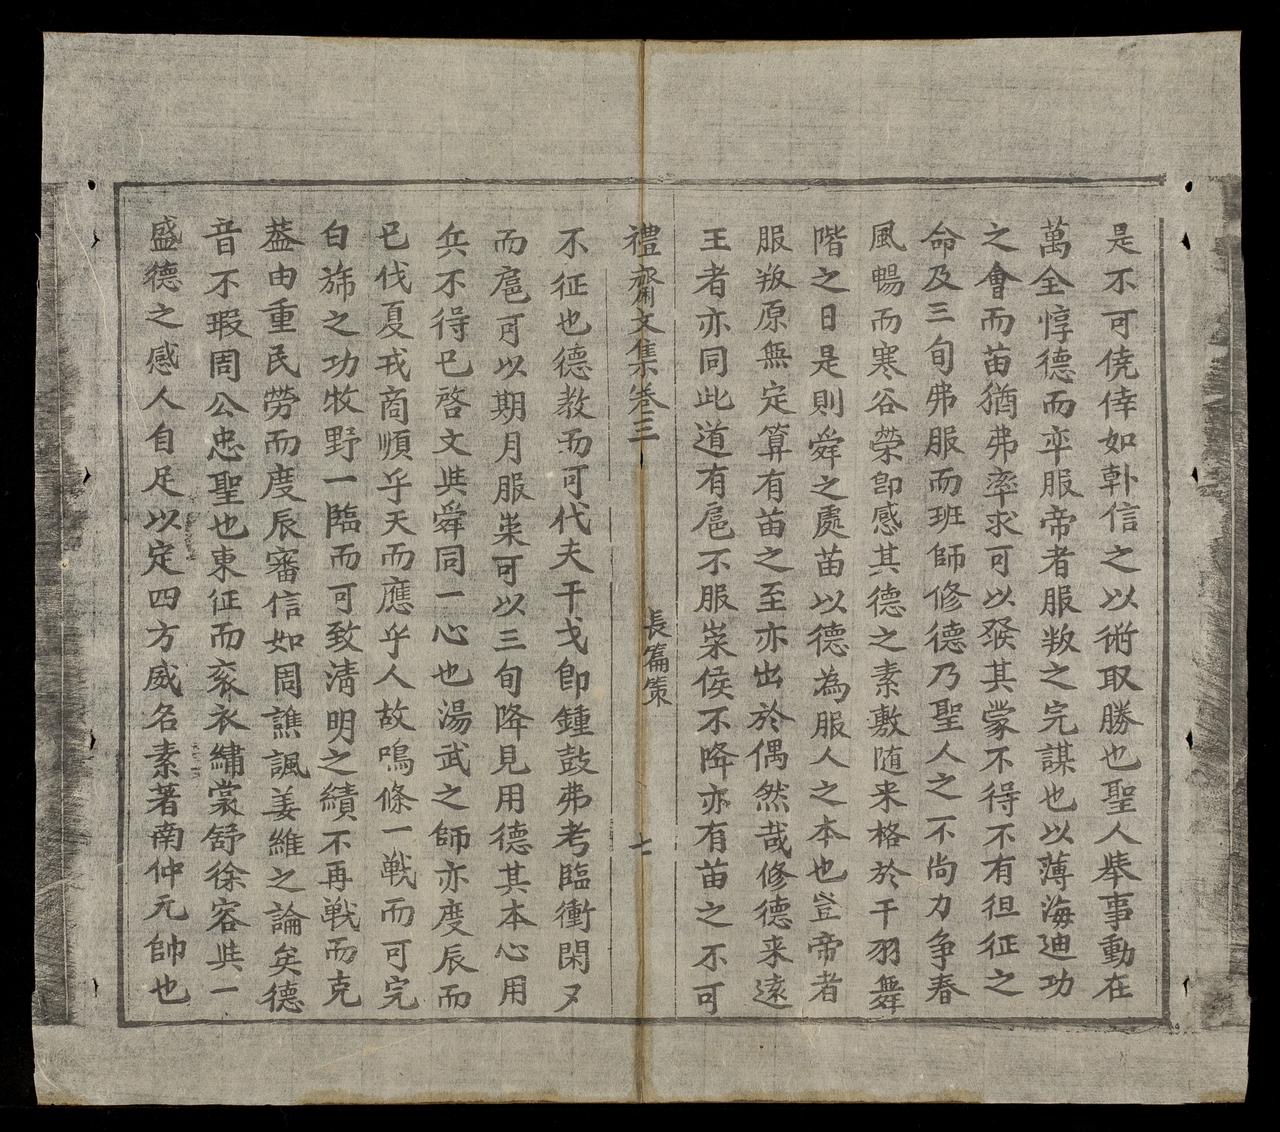 是不可僥倖如韓信之以術取勝也聖人舉事動在
萬全惇德而卒服帝者服叛之完謀也以薄海迪功
之會而苗猶弗率求可以發其蒙不得不有徂征之
命及三旬弗服而班師修德乃聖人之不尚力争春
風暢而寒谷荣即感其德之素敷随来格於干羽舞
階之日是則舜之處苗以德為服人之本也豈帝者
服叛原無定算有苗之至亦出於偶然哉修德来遠
王者亦同此道有扈不服崇侯不降亦有苗之不可
禮齋文集卷三 長篇策 七
不征也德教而可代夫干戈即鍾鼓弗考臨衝閑又
而扈可以期月服崇可以三旬降見用德其本心用
兵不得已啓文與舜同一心也湯武之師亦度辰而
已伐夏戎商順乎天而應乎人故鳴條一戰而可完
白旆之功牧野一臨而可致清明之績不再戰而克
蓋由重民勞而度辰審信如周譙諷姜維之論矣德
音不瑕周公忠聖也東征而衮衣繡裳舒徐容與一
盛德之感人自足以定四方威名素著南仲元帥也